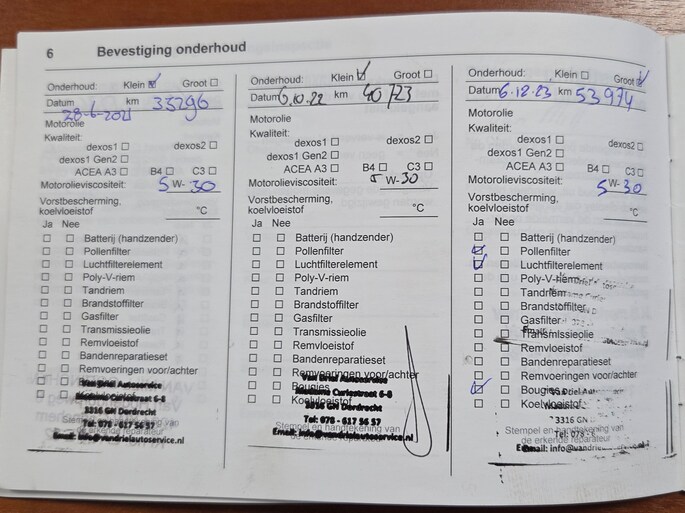 6 Bevestiging onderhoud
Onderhoud: Klein Groot
Datum 28-6-2021 km 33296
Motorolie
Kwaliteit:
dexos1 dexos2
dexos1 Gen2
ACEA A3 B4 C3
Motorolieviscositeit: 5 W- 30
Vorstbescherming,
koelvloeistof °C
Ja Nee
Batterij (handzender)
Pollenfilter
Luchtfilterelement
Poly-V-riem
Tandriem
Brandstoffilter
Gasfilter
Transmissieolie
Remvloeistof
Bandenreparatieset
Remvoeringen voor/achter
Van Driel Autoservice
Madame Curiestraat 6-8
3316 GN Dordrecht
Tel: 078 - 617 56 57
Stempel en handtekening van
de erkende reparateur
Email: info@vandrielautoservice.nl
Onderhoud: Klein Groot
Datum 6.10.22 km 40723
Motorolie
Kwaliteit:
dexos1 dexos2
dexos1 Gen2
ACEA A3 B4 C3
Motorolieviscositeit: 5 W- 30
Vorstbescherming,
koelvloeistof °C
Ja Nee
Batterij (handzender)
Pollenfilter
Luchtfilterelement
Poly-V-riem
Tandriem
Brandstoffilter
Gasfilter
Transmissieolie
Remvloeistof
Bandenreparatieset
Remvoeringen voor/achter
Van Driel Autoservice
Bougies
Madame Curiestraat 6-8
Koelvloeistof
3316 GN Dordrecht
Tel: 078 - 617 56 57
Stempel en handtekening van
Email: info@vandrielautoservice.nl
de erkende reparateur
Onderhoud: Klein Groot
Datum 6.12.23 km 53974
Motorolie
Kwaliteit:
dexos1 dexos2
dexos1 Gen2
ACEA A3 B4 C3
Motorolieviscositeit: 5 W- 30
Vorstbescherming,
koelvloeistof °C
Ja Nee
Batterij (handzender)
Pollenfilter
Luchtfilterelement
Poly-V-riem
Tandriem
Brandstoffilter
Gasfilter
Transmissieolie
Remvloeistof
Bandenreparatieset
Remvoeringen voor/achter
Bougies
Koelvloeistof
3316 GN
Tel: 078
Stempel en handtekening van
Email: info@vandriel
de erkende reparateur